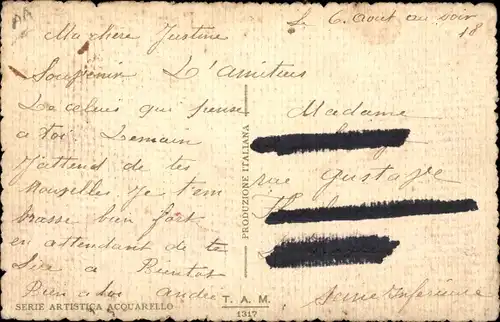 Le 6. Aout au soir
18
Ma chere Justine
Souvenir L'amities
De celui qui pense
a toi Demain
J'attend de tes
Nouvelles Je t'em
brasse bien fort
en attendant de te
Lire a Bientot
Rien a toi andre
Madame
rue Gustave
Seine Inferieure
PRODUZIONE ITALIANA
SERIE ARTISTICA ACQUARELLO
T. A. M.
1317